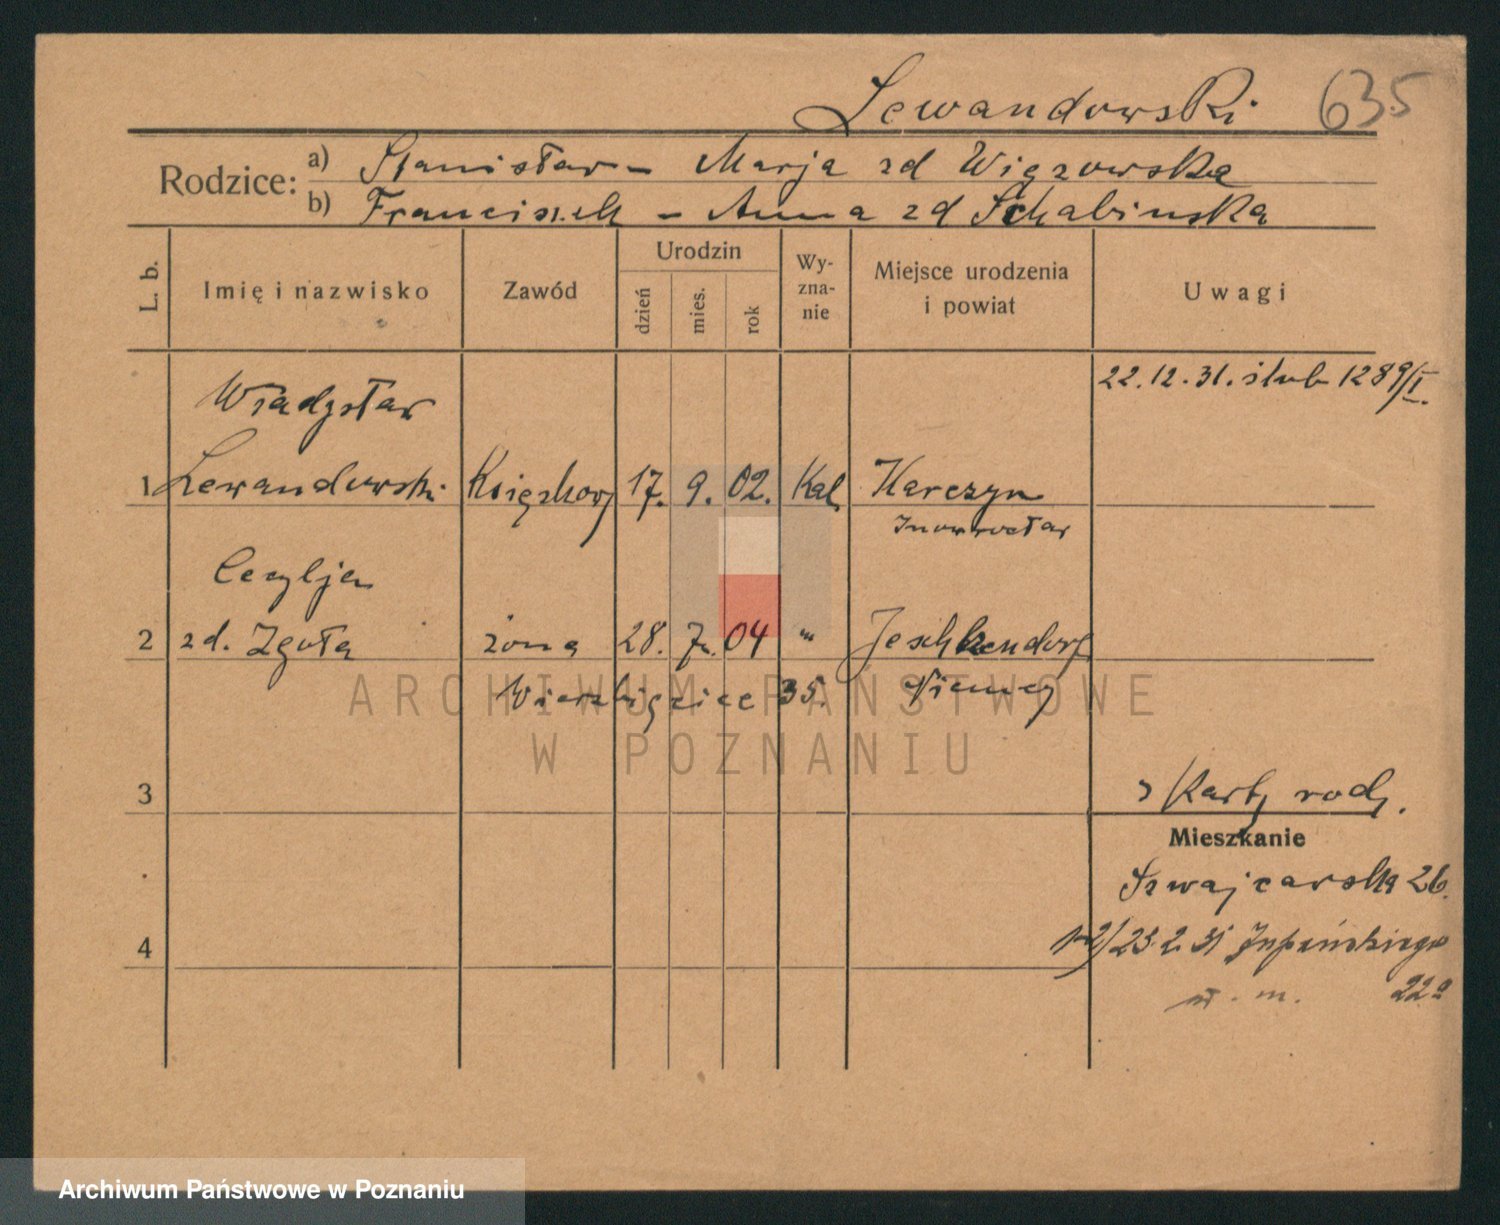 Lewandowski 635
Rodzice: a) Stanisław – Marja zd Więzowska
b) Franciszek – Anna zd Schabinska
L. b. Imię i nazwisko Zawód Urodzin dzień mies. rok Wy-zna-nie Miejsce urodzenia i powiat Uwagi
22.12.31. ślub 1289/I.
Władysław
1 Lewandowski Księgkow 17. 9. 02. Kat. Karczyn
Inowrocław
Cecylja
2 zd. Zgoła żona 28. 7. 04 " Jeschkendorf
Wierzbięcice 35. Niemcy
ARCHIWUM PAŃSTWOWE
W POZNANIU
3 z Karty rodz.
Mieszkanie
Szwajcarska 26.
4 23.2.31
w. m. 22a
Archiwum Państwowe w Poznaniu